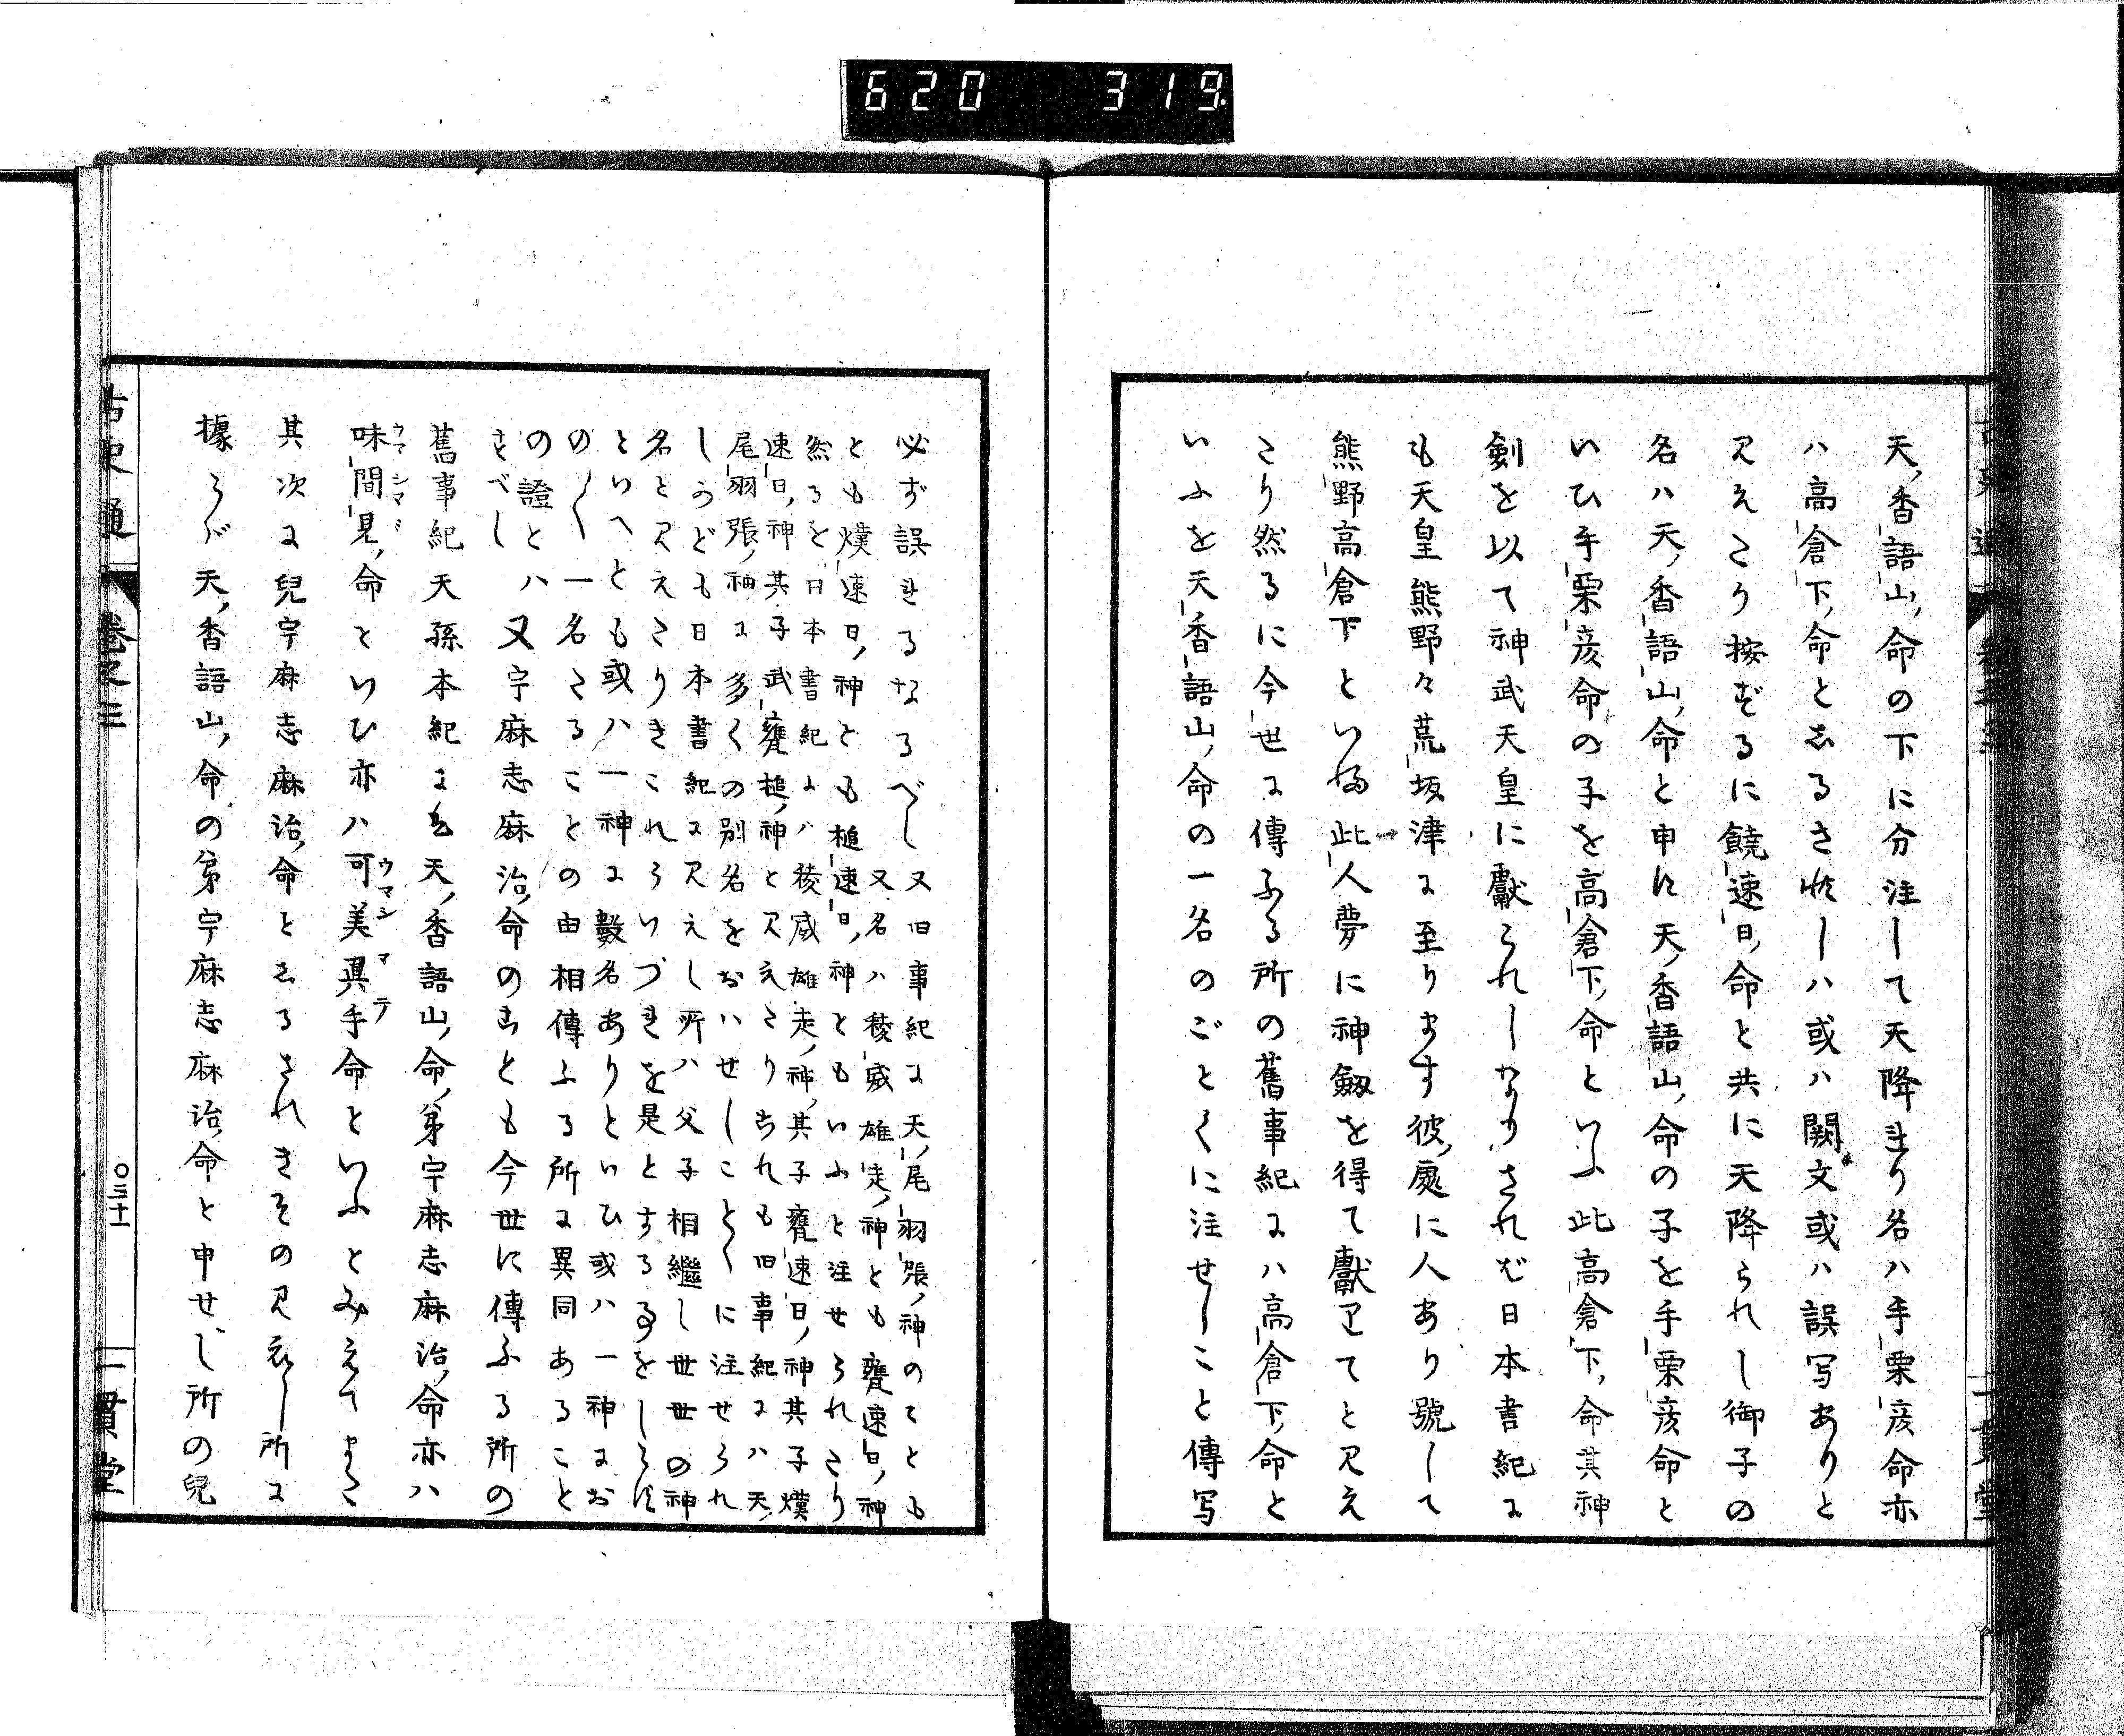 620 319
天香語山命の下に分注して天降まり名ハ手栗彦命亦
ハ高倉下命と志るされしハ或ハ闕文或ハ誤写ありと
見えたり按ずるに饒速日命と共に天降られし御子の
名ハ天香語山命と申に天香語山命の子を手栗彦命と
いひ手栗彦命の子を高倉下命といふ此高倉下命其神
剣を以て神武天皇に獻られしなりされば日本書紀に
も天皇熊野々荒坂津に至ります彼處に人あり號して
熊野高倉下といふ此人夢に神劔を得て獻りてと見え
たり然るに今世に傳ふる所の舊事紀にハ高倉下命と
いふを天香語山命の一名のごとくに注せしこと傳写
必ず誤まるなるべし又旧事紀に天尾羽張神のことも
又名ハ稜威雄走神とも甕速日神
とも熯速日神とも槌速日神ともいふと注せられたり
然るを日本書紀にハ稜威雄走神其子甕速日神其子熯
速日神其子武甕槌神と見えたりこれも旧事紀にハ天
尾羽張神に多くの別名をおハせしことゝに注せられ
しかども日本書紀に見えし所ハ父子相繼し世世の神
名と見えたりきこれらいづれを是とする事をしらず
といへとも或ハ一神に數名ありといひ或ハ一神にお
の〳〵一名たることの由相傳ふる所に異同あること
の證とハ
又宇麻志麻治命のことも今世に傳ふる所の
すべし
舊事紀天孫本紀にも天香語山命弟宇麻志麻治命亦ハ
味間見命といひ亦ハ可美眞手命といふとみえてまた
ウマシマミ
ウマシマテ
其次に兒宇麻志麻治命としるされきその見えし所に
據らバ天香語山命の弟宇麻志麻治命と申せし所の兒
古史通 卷之三 〇三十一 一貫堂